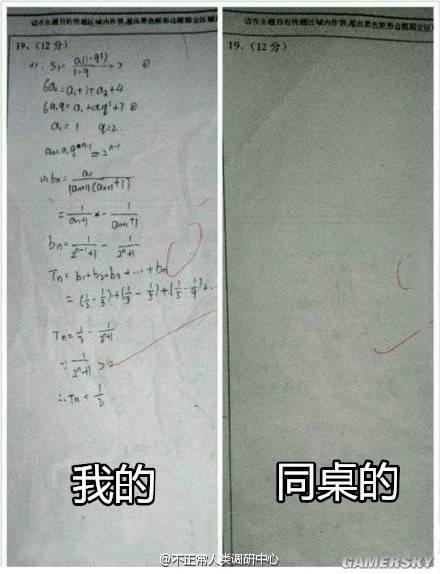 请在各题目的答题区域内作答,超出黑色矩形边框限定区域
19、(12 分)
S₃ = a₁(1-q³)/(1-q) = 7 ①
6a₂ = a₁+3+a₃+4
6a₁q = a₁+a₁q²+7 ②
a₁ = 1 q=2
aₙ=a₁qⁿ⁻¹=2ⁿ⁻¹
bₙ = aₙ/((aₙ+1)(aₙ₊₁+1))
= 1/(aₙ+1) - 1/(aₙ₊₁+1)
bₙ = 1/(2ⁿ⁻¹+1) - 1/(2ⁿ+1)
Tₙ = b₁+b₂+b₃+⋯+bₙ
= (1/2-1/3)+(1/3-1/5)+(1/5-1/9)+⋯
Tₙ = 1/2 - 1/(2ⁿ+1)
∵ 1/(2ⁿ+1) > 0
∴ Tₙ < 1/2
我的
请在各题目的答题区域内作答,超出黑色矩形边框限定区
19、(12 分)
同桌的
@不正常人类调研中心
GAMERSKY